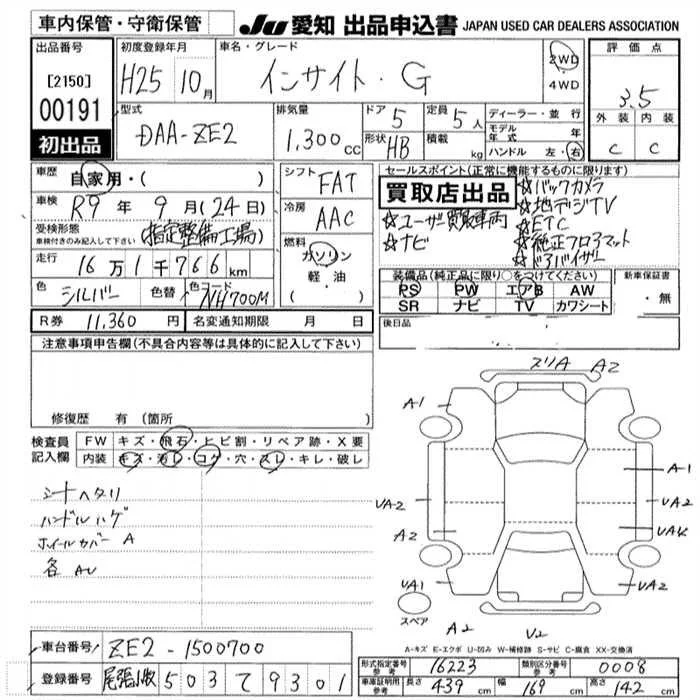 車内保管・守衛保管
JU 愛知 出品申込書 JAPAN USED CAR DEALERS ASSOCIATION
出品番号
[2150]
00191
初出品
初度登録年月
H25 10月
車名・グレード
インサイト・G
2WD
・
4WD
評価点
3.5
外装 内装
C C
型式
DAA-ZE2
排気量
1,300cc
ドア 5
形状 HB
定員 5人
積載 kg
ディーラー・並行
モデル年式 年
ハンドル 左・右
車歴
自家用・( )
車検 R9年 9月(24日)
受検形態
車検付きのみ記入して下さい
(指定整備工場)
走行 16万1千766km
色 シルバー 色替 色コード NH700M
シフト FAT
冷房 AAC
燃料
ガソリン
・
軽・油
・( )
セールスポイント(正常に機能するものに限ります)
買取店出品
☆バックカメラ
☆地デジTV
☆ユーザー買取車両
☆ETC
☆ナビ
☆純正フロアマット
☆ドアバイザー
装備品(純正品に限り○をつけてください)
PS PW エアB AW
SR ナビ TV カワシート
新車保証書
・無
後日品
R券 11,360円
名変通知期限 月 日
注意事項申告欄(不具合内容等は具体的に記入して下さい)
修復歴 有(箇所
検査員記入欄
FW キズ・飛石・ヒビ割・リペア跡・X要
内装 キズ・汚レ・コゲ・穴・スレ・キレ・破レ
シートヘタリ
ハンドルハゲ
ホイールカバー A
各AU
スリA A2
A1
A-1
UA-2
UA2
A2
UA1
UA2
スペア
A2
U2
A-キズ E-エクボ U-凹み W-補修跡 S-サビ C-腐食 XX-交換済
車台番号 ZE2-1500700
登録番号 尾張小牧 503 て 9301
形式指定番号 参考 16223
類別区分番号 参考 0008
車庫証明用 参考 長さ 439cm 幅 169cm 高さ 142cm